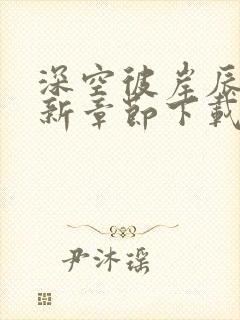 深空彼岸辰
新章节下载
尹沐瑶